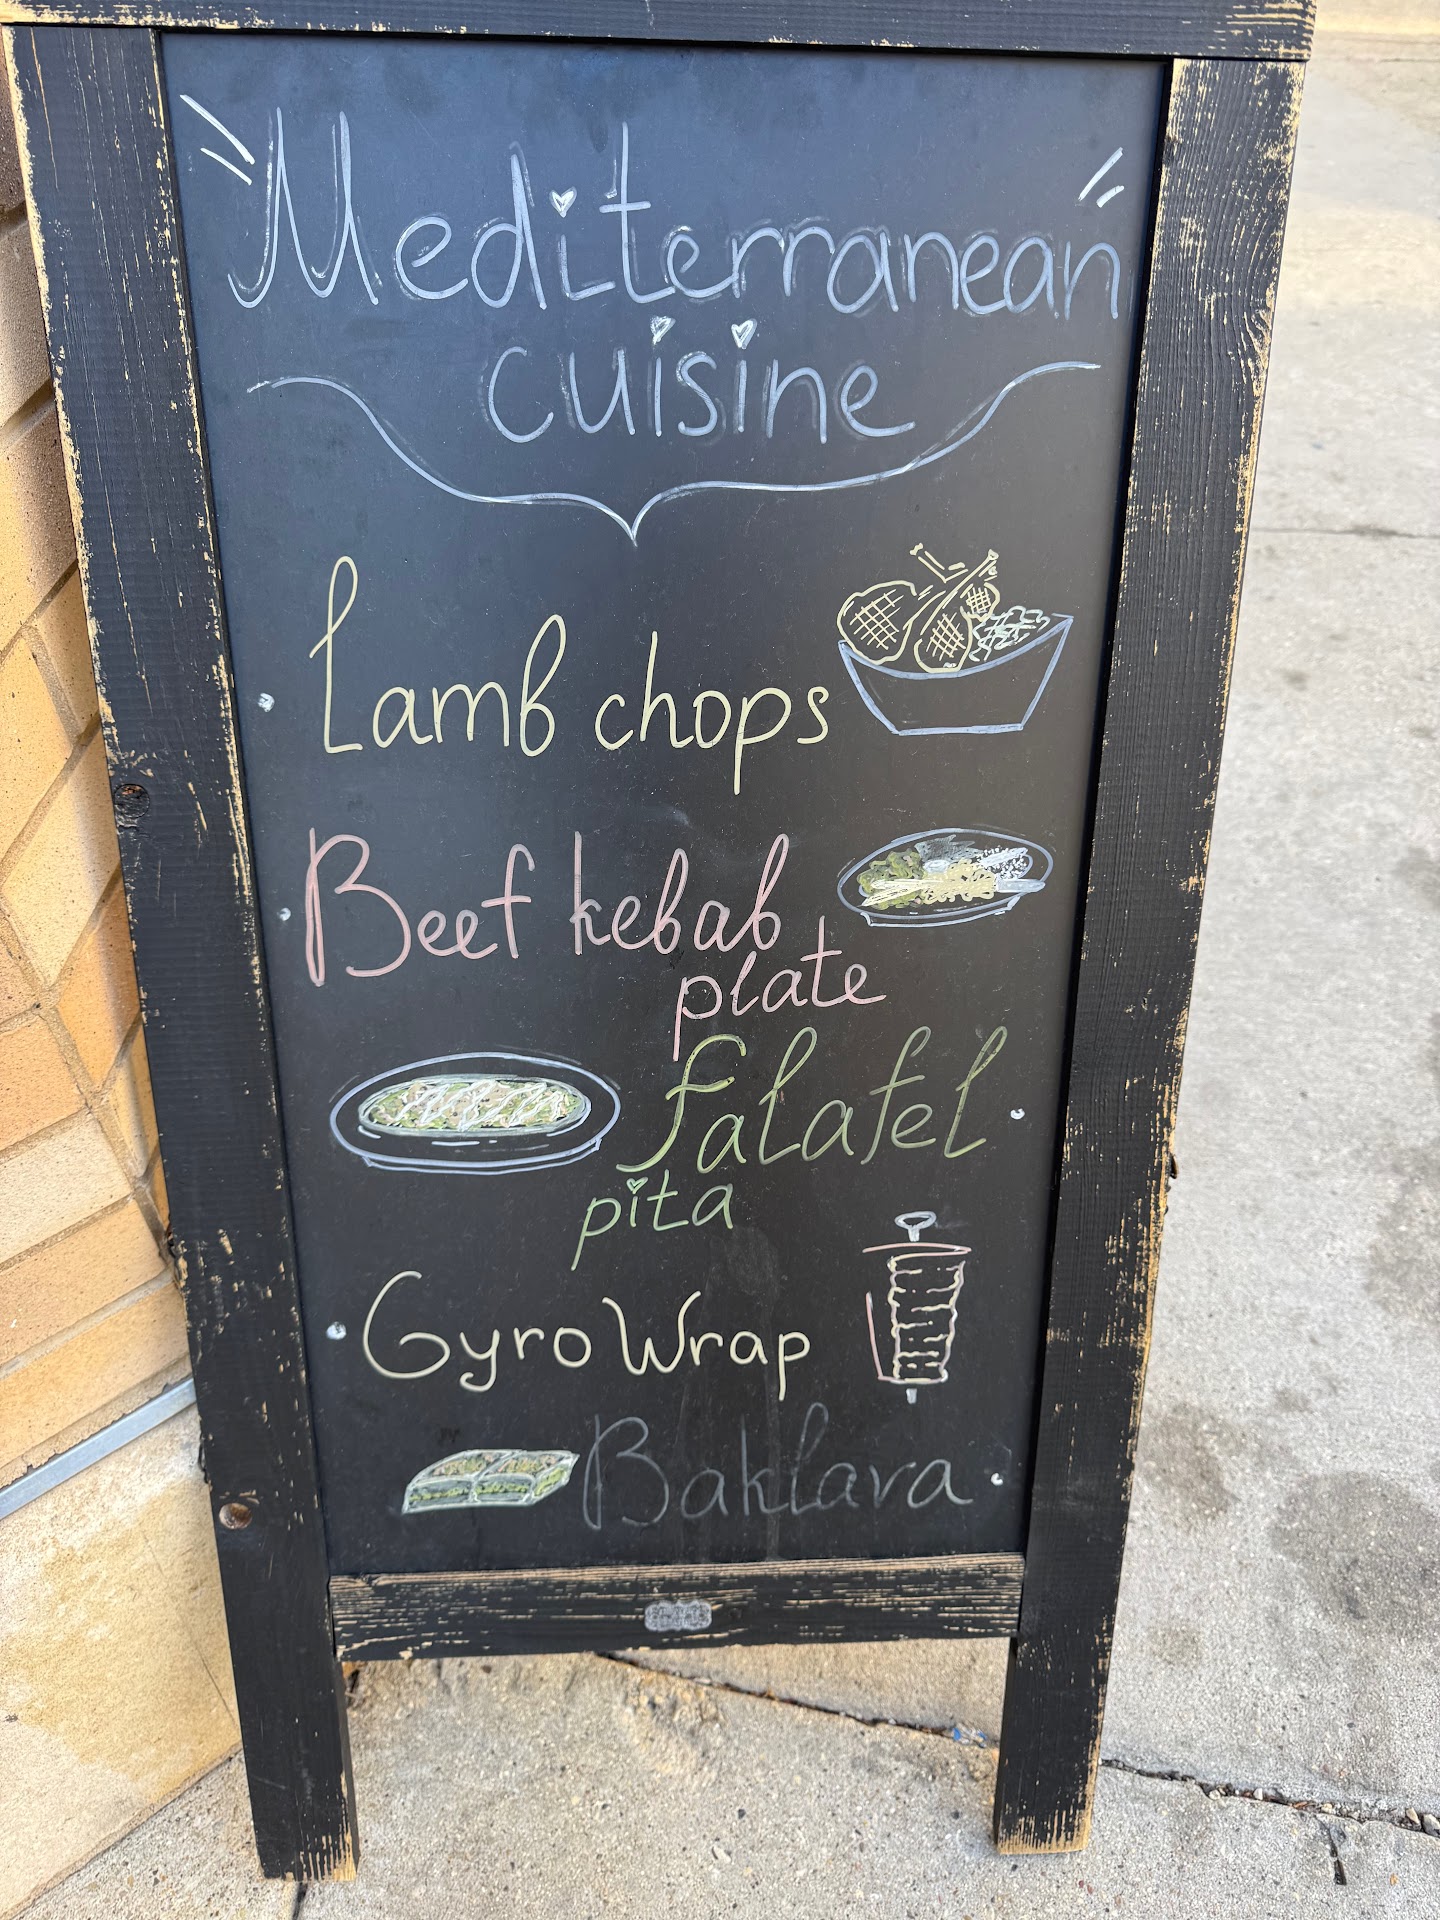 Mediterranean
cuisine
Lamb chops
Beef kebab
plate
Falafel
pita
Gyro Wrap
Baklava